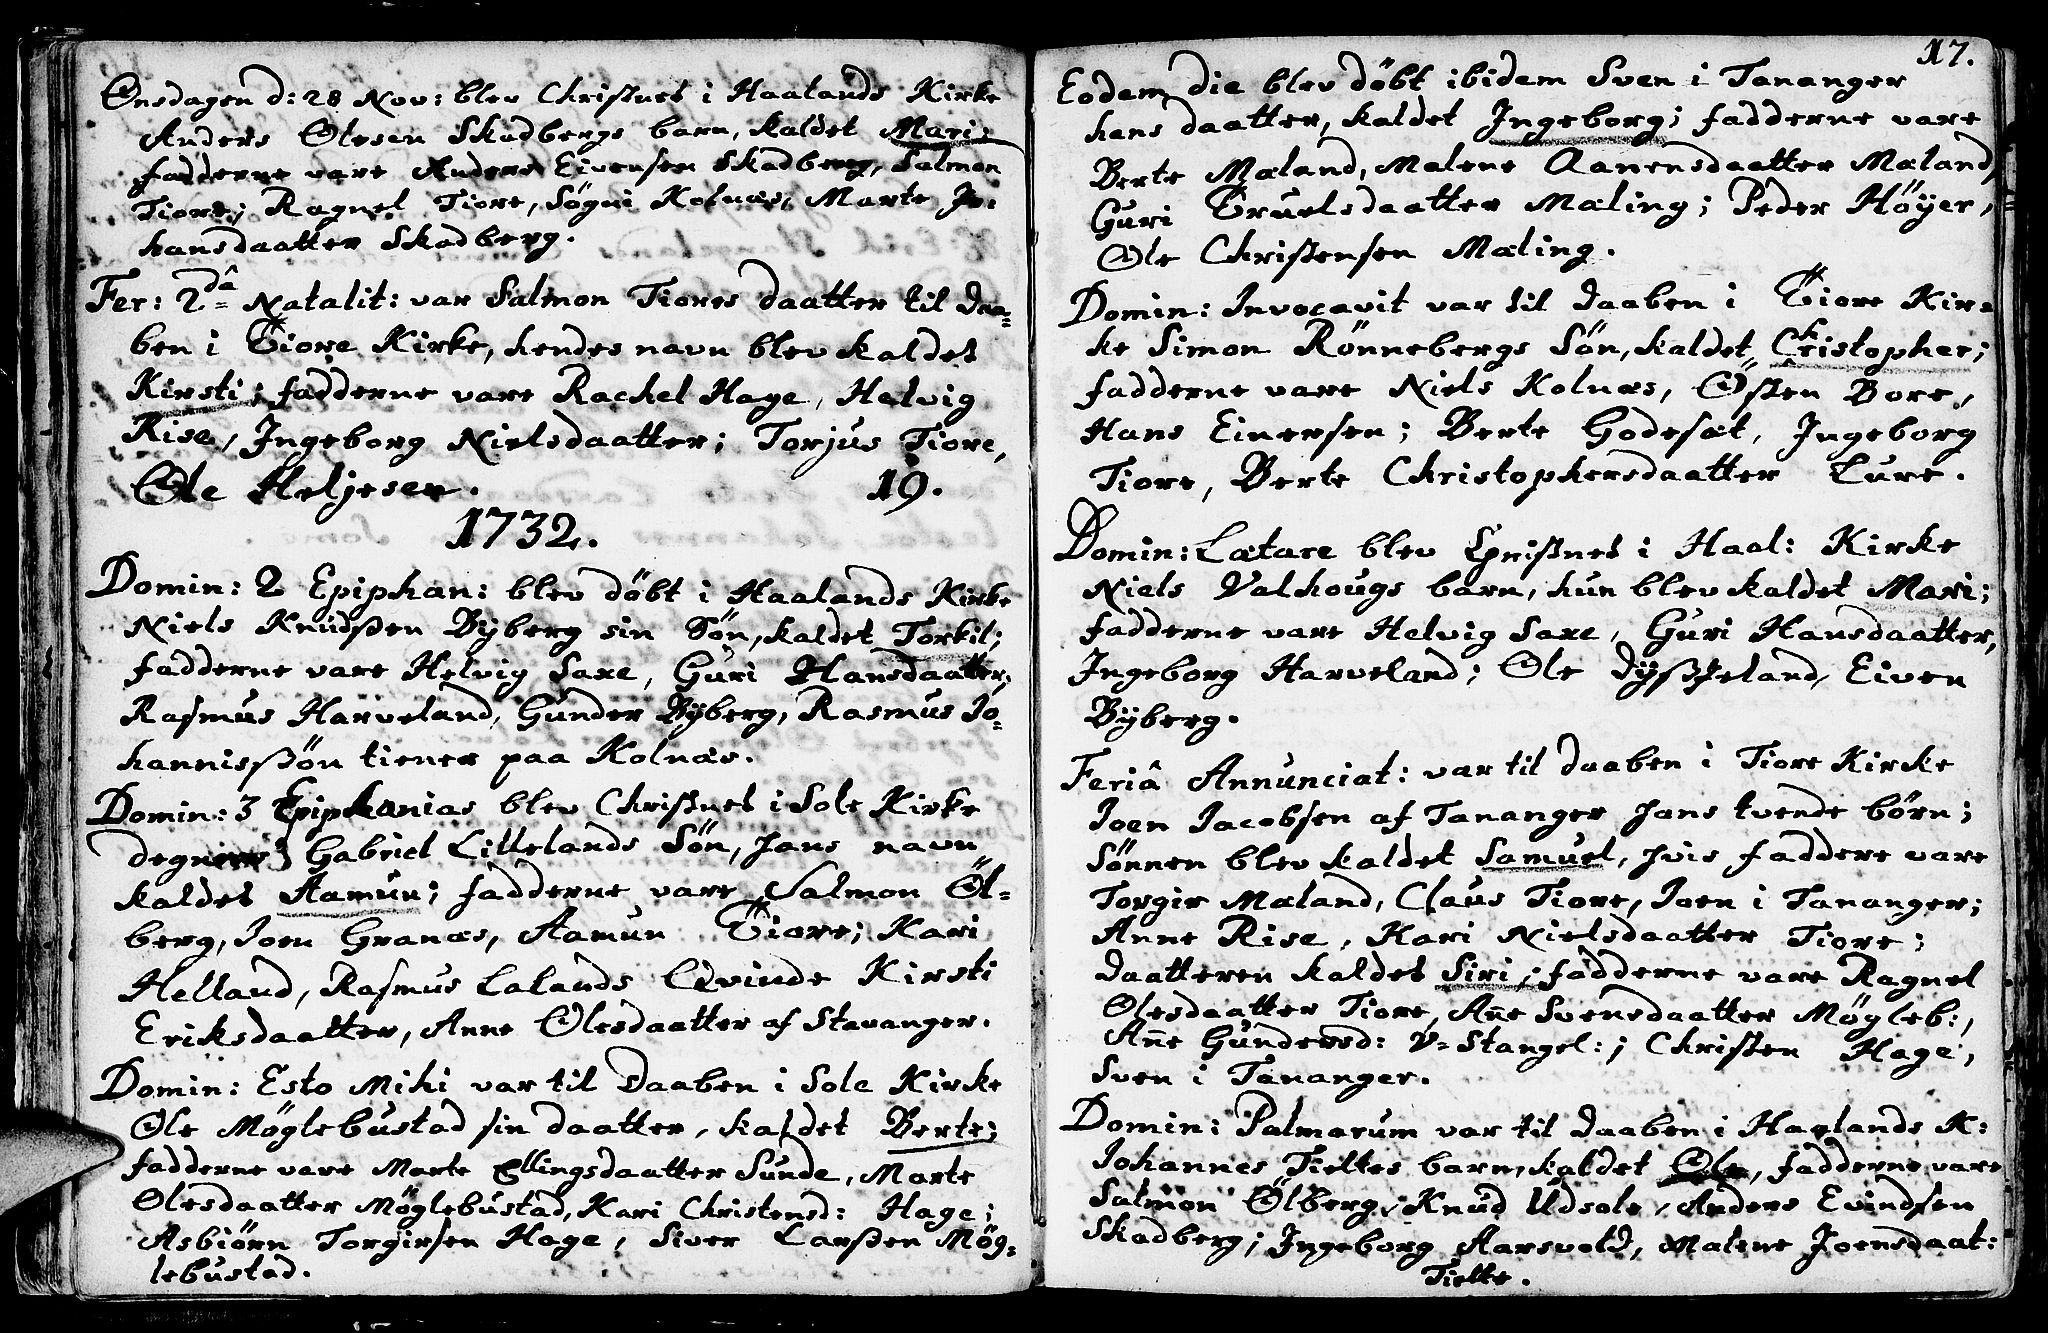 Onsdagen d: 28 Nov: blev Christnet i Haalands Kirke
Anders Olesen Skadbergs barn, kaldet Mari;
fadderne vare Anders Eivensen Skadberg, Salmon
Tiore; Ragnel Tiore, Sögni Kolnæs, Marte Jo:
hansdaatter Skadberg.
Fer: 2dâ Natalit: var Salmon Tiores daatter til daa=
ben i Tiore Kirke, hendes navn blev kaldet
Kirsti; fadderne vare Rachel Hage, Helvig
Rise, Ingeborg Nielsdaatter; Torjus Tiore,
Ole Heljesen. 19.
1732.
Domin: 2 Epiphan: blev döbt i Haalands Kirke
Niels Knudssen Byberg sin Sön, kaldet Torkil;
fadderne vare Helvig Saxe, Guri Hansdaatter,
Rasmus Harveland, Gunder Byberg, Rasmus Jo=
hannissön tiener paa Kolnæs.
Domin: 3 Epiphanias blev Christnet i Sole Kirke
degnens Gabriel Lillelands Sön, hans navn
kaldet Aamun; fadderne vare Salmon Öl=
berg, Joen Granæs, Aamun Tiore; Kari
Helland, Rasmus Lalands Qvinde Kirsti
Eriksdaatter, Anne Olesdaatter af Stavanger.
Domin: Esto Mihi var til Daaben i Sole Kirke
Ole Möglebustad sin daatter, kaldet Berte;
fadderne vare Marte Ellingsdaatter Sunde, Marte
Olesdaatter Möglebustad, Kari Christensd: Hage;
Asbiörn Torgirsen Hage, Siver Larssen Mög=
lebustad.
17.
Eodem die blev döbt ibidem Sven i Tananger
hans daatter, kaldet Ingeborg; fadderne vare
Berte Mæland, Malene Aanensdaatter Mæland,
Guri Truelsdaatter Mæling; Peder Höyer,
Ole Christensen Mæling.
Domin: Invocavit var til Daaben i Tiore Kir=
ke Simon Rönnebergs Sön, kaldet Christopher;
fadderne vare Niels Kolnæs, Östen Bore,
Hans Einersen; Berte Godesæt, Ingeborg
Tiore, Berte Christophersdaatter Lure.
Domin: Lætare blev Christnet i Haal: Kirke
Niels Valhougs barn, hun blev kaldet Mari;
fadderne vare Helvig Saxe, Guri Hansdaatter,
Ingeborg Harveland; Ole Dysseland, Eiven
Byberg.
Feriâ Annunciat: var til Daaben i Tiore Kirke
Joen Jacobsen af Tananger hans tvende börn;
Sönnen blev kaldet Samuel, hvis faddere vare
Torgir Mæland, Claus Tiore, Joen i Tananger;
Anne Rise, Kari Nielsdaatter Tiore;
daatteren kaldet Siri; fadderne vare Ragnel
Olesdaatter Tiore, Añe Svensdaatter Mögleb:,
Añe Gundersd: V=Stangel:; Christen Hage,
Sven i Tananger.
Domin: Palmarum var til Daaben i Haalands K:
Johannes Tieltes barn, kaldet Ole, fadderne vare
Salmon Ölberg, Knud Udsole, Anders Evindsen
Skadberg; Ingeborg Aarsvold, Malene Joensdaat:
Tielte.